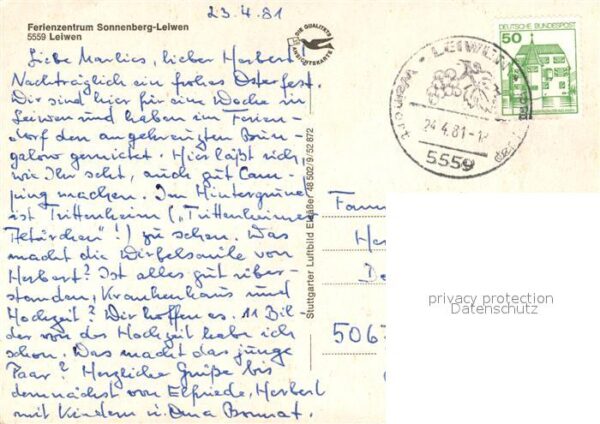 23.4.81
Ferienzentrum Sonnenberg-Leiwen
5559 Leiwen
Liebe Marlies, lieber Herbert
Nachträglich ein frohes Osterfest.
Wir sind hier für eine Woche in
Leiwen und haben im Ferien-
dorf den angekreuzten Bun-
galow gemietet. Hier läßt sich
wie Ihr seht, auch gut Cam-
ping machen. Im Hintergrund
ist Trittenheim („Trittenheimer
Altärchen"!) zu sehen. Was
macht die Wirbelsäule von
Herbert? Ist alles gut über-
standen, Krankenhaus und
Hochzeit? Wir hoffen es. 11 Bil-
der von der Hochzeit habe ich
schon. Was macht das junge
Paar? Herzliche Grüße bis
demnächst von Elfriede, Herbert
mit Kindern u. Oma
DIE QUALITÄTS
ANSICHTSKARTE
Stuttgarter Luftbild Elsäßer 48502/9/52872
LEIWEN
24.4.81-1
5559
DEUTSCHE BUNDESPOST
50
Fam
He
D
506
privacy protection
Datenschutz